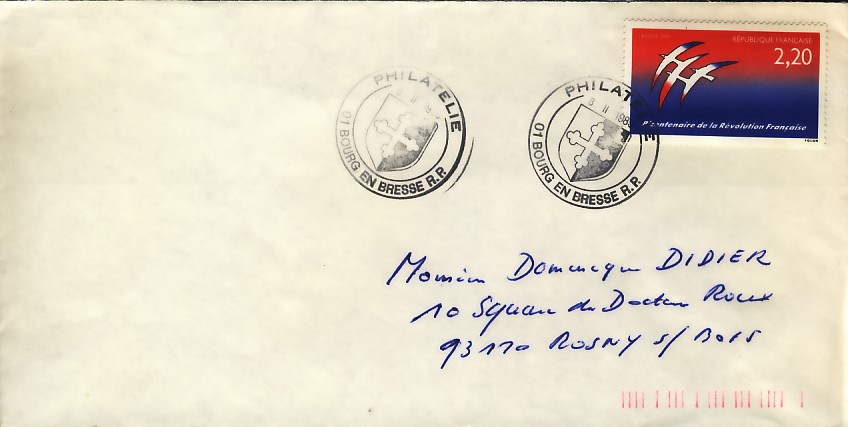 RÉPUBLIQUE FRANÇAISE
2,20
Bicentenaire de la Révolution Française
PHILATELIE
01 BOURG EN BRESSE R.P.
PHILATELIE
01 BOURG EN BRESSE R.P.
Monsieur Dominique DIDIER
10 Square du Docteur Roux
93110 ROSNY s/ BOIS